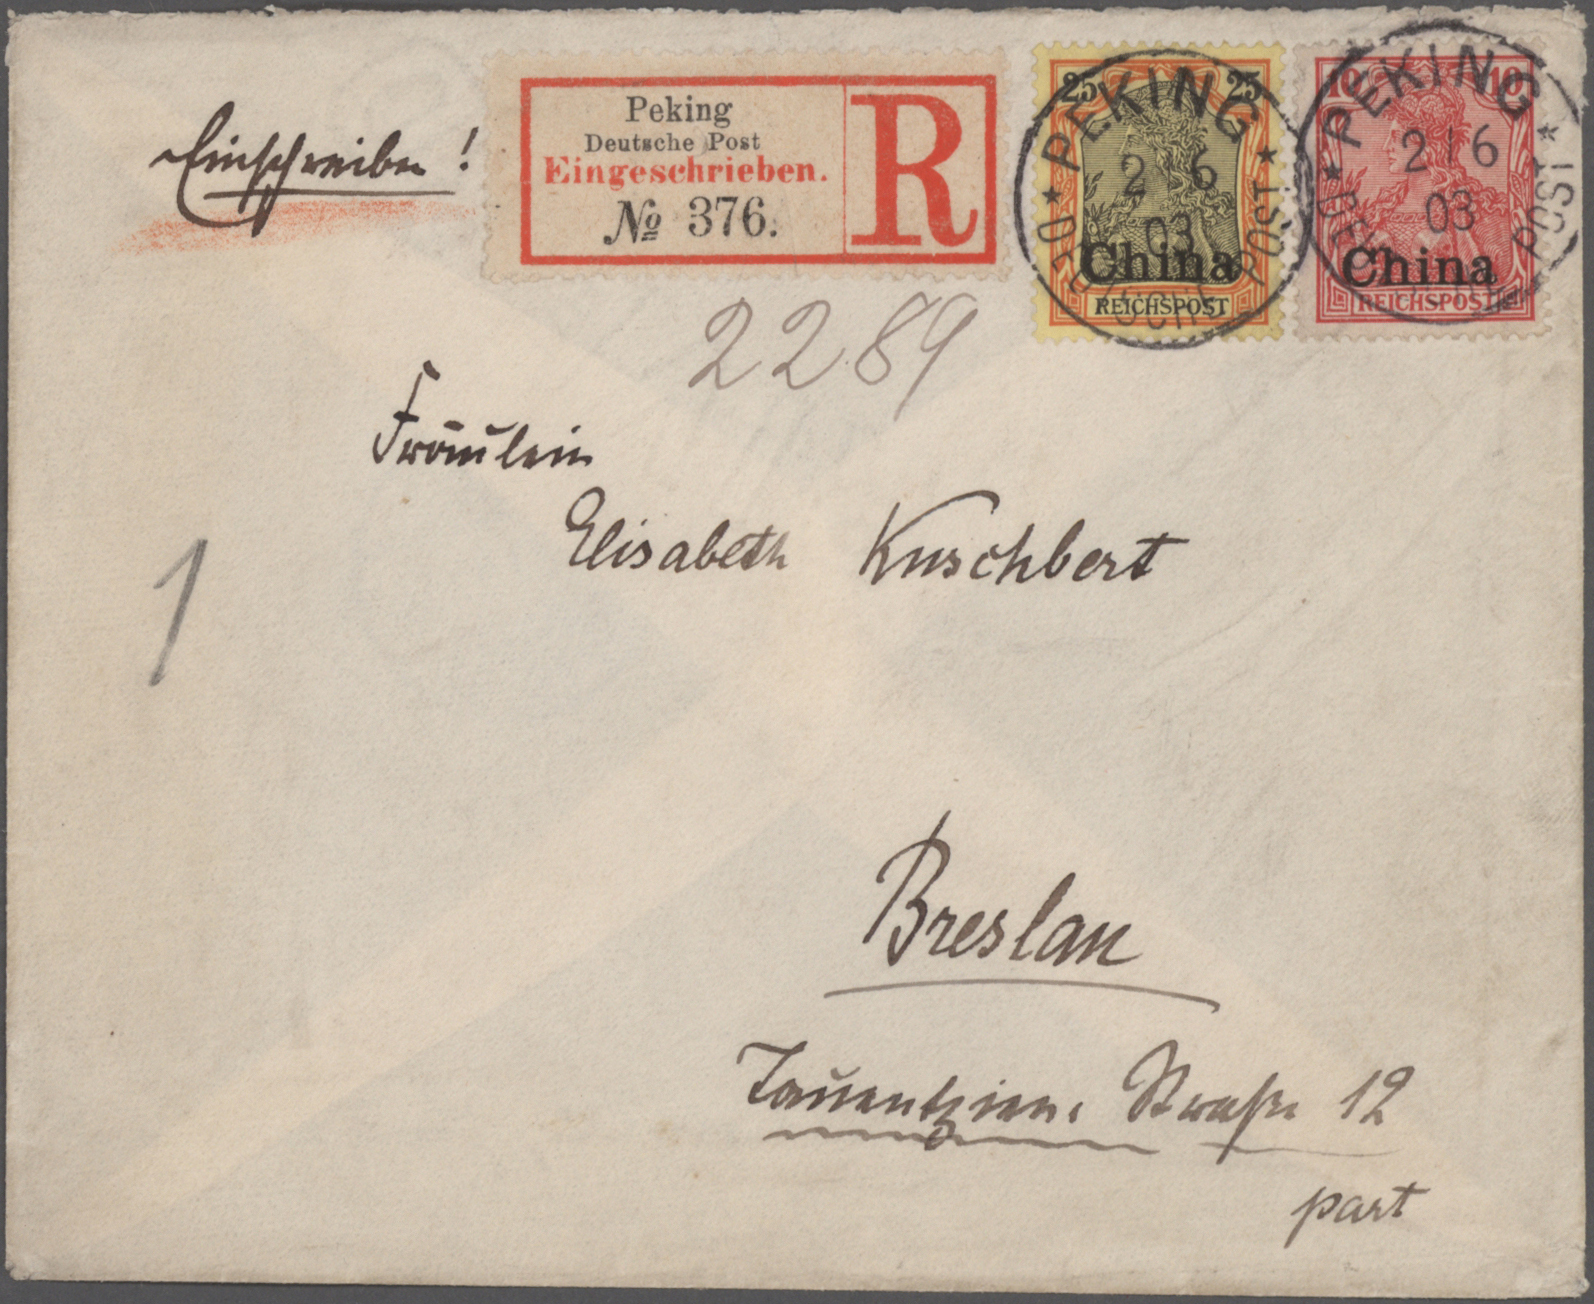 Einschreiben!
Peking
Deutsche Post
Eingeschrieben.
№ 376.
R
25 25
China
REICHSPOST
PEKING
2 6
03
DEUTSCHE POST
10 10
China
REICHSPOST
PEKING
2 6
03
DEUTSCHE POST
2289
Fräulein
Elisabeth Kuschbert
1
Breslau
Tauentzien Straße 12
part